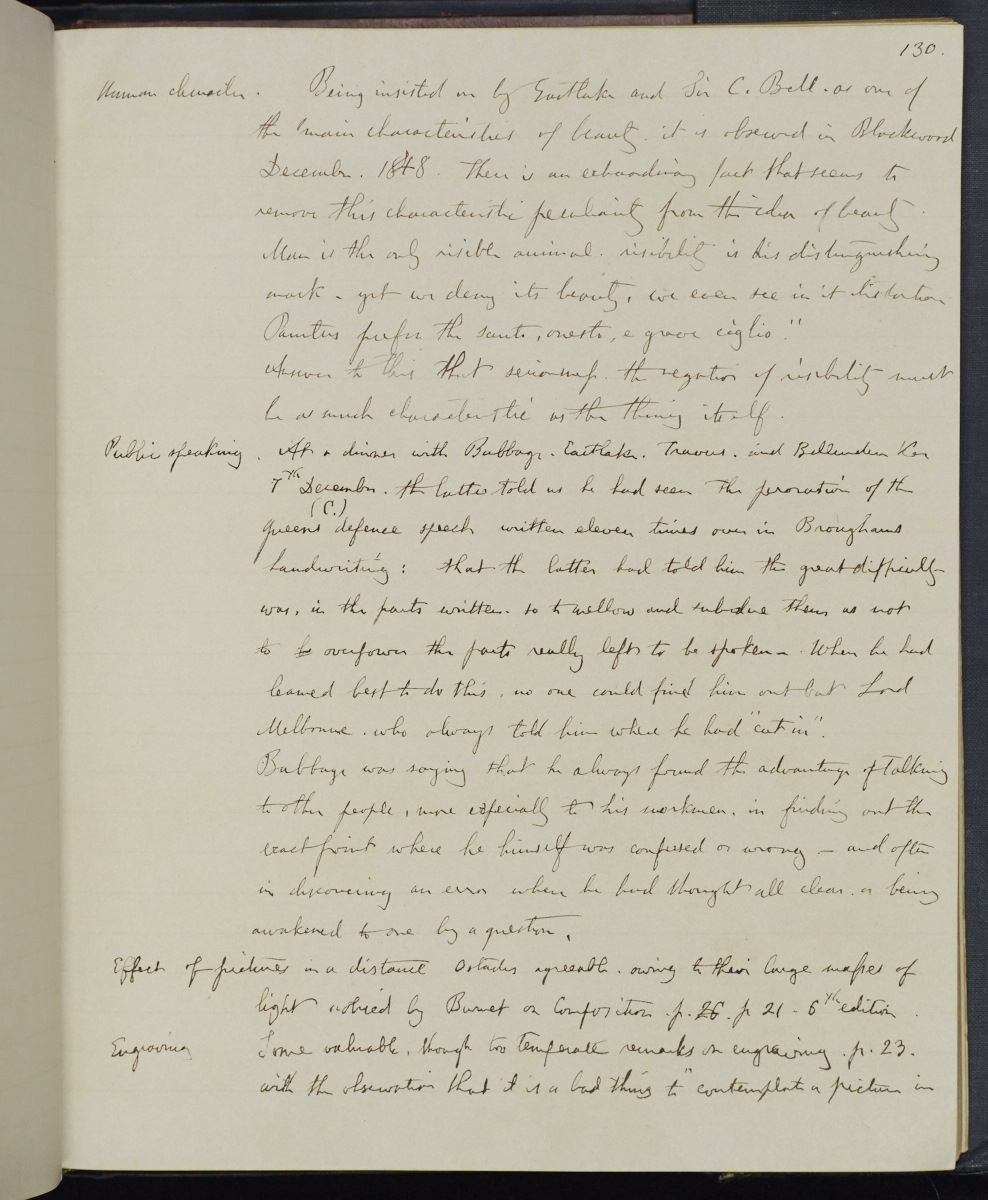 130.
Human character. Being insisted on by Eastlake and Sir C. Bell. as one of
the main characteristics of beauty. it is observed in Blackwood
December. 1848. There is an extraordinary fact that seems to
remove this characteristic peculiarity from the idea of beauty.
Man is the only risible animal. risibility is his distinguishing
mark - yet we deny its beauty, we even see in it distortion
Painters prefer the santo, onesto, e grave ciglio."
Answer to this that seriousness. the negation of risibility must
be as much characteristic as the thing itself.
Public speaking. At a dinner with Babbage. Eastlake. Travers. and Bellenden Ker
7th December. the latter told us he had seen the peroration of the
(C.)
Queens defence speech written eleven times over in Broughams
handwriting: that the latter had told him the great difficulty
was, in the parts written. so to mellow and subdue them as not
to overpower the parts really left to be spoken -. When he had
learned best to do this, no one could find him out but Lord
Melbourne. who always told him where he had "cut in".
Babbage was saying that he always found the advantage of talking
to other people, more especially to his workmen. in finding out the
exact point where he himself was confused or wrong - and often
in discovering an error when he had thought all clear. or being
awakened to one by a question.
Effect of pictures in a distance Ostades agreeable. owing to their large masses of
light noticed by Burnet on Composition. p. 26. p 21 - 6th edition.
Engraving Some valuable, though too temperate remarks on engraving. p. 23.
with the observation that it is a bad thing to "contemplate a picture in